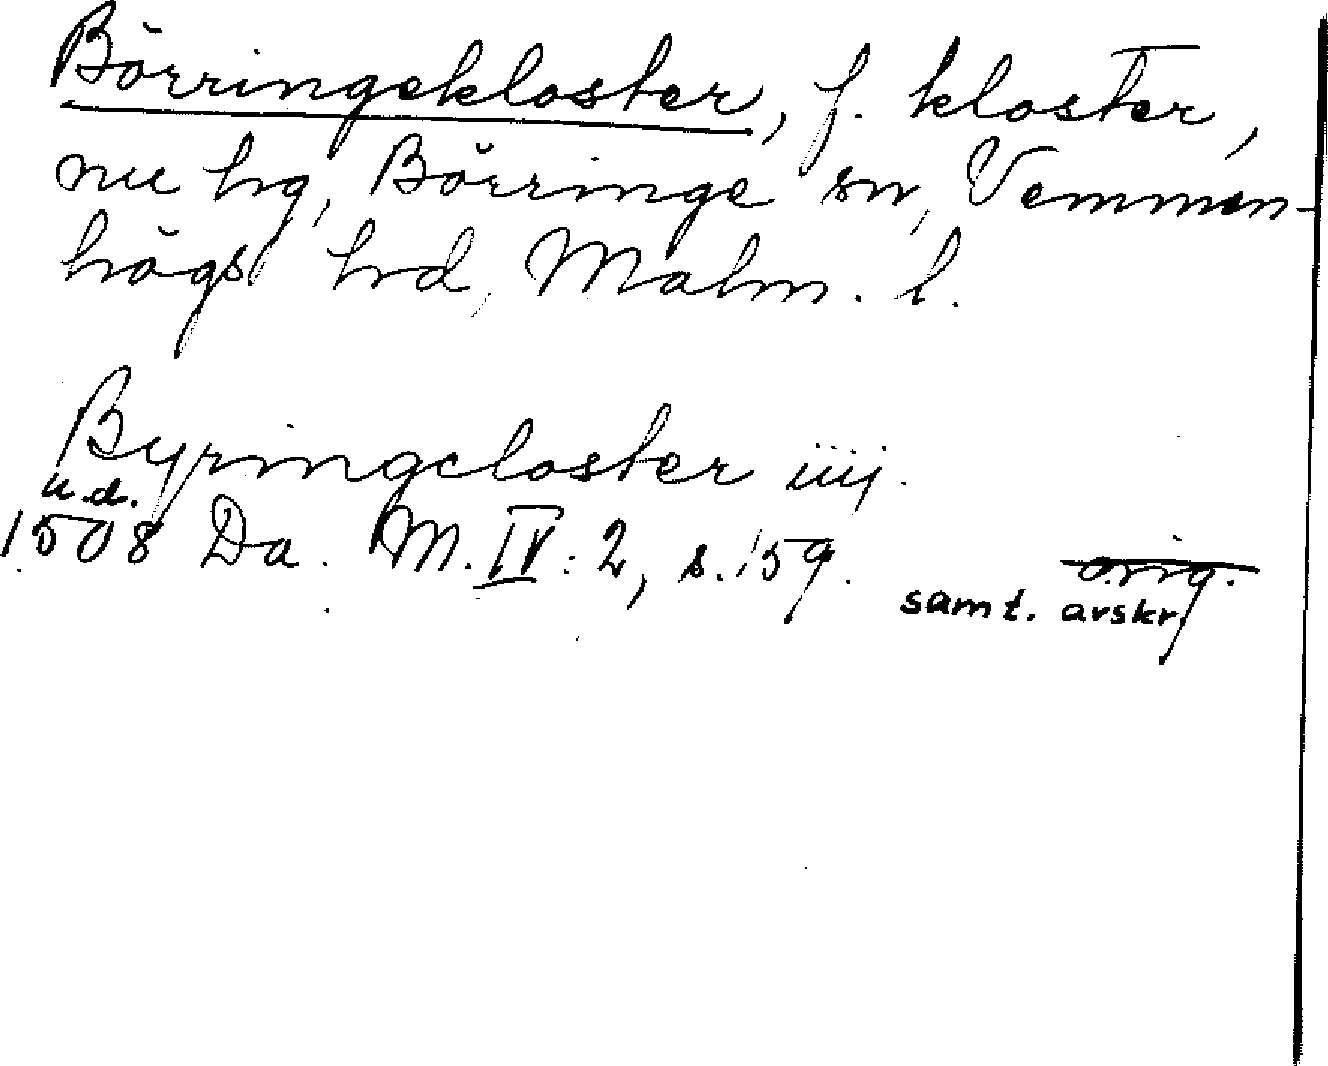 Börringekloster, f. kloster,
nu hg, Börringe sn, Vemmen-
högs hd, Malm. l.
Byringcloster iiij.
u.d.
1508 Da. M. IV: 2, s. 159.
orig.
samt. avskr.